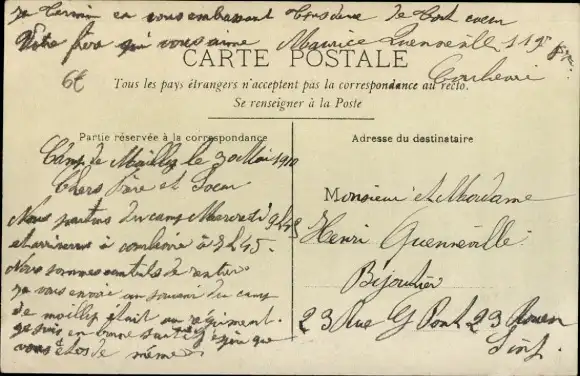 Je termine en vous embrassant tous deux de tout coeur
Votre frère qui vous aime Maurice Quenneville 119e
CARTE POSTALE
6€
Tous les pays étrangers n'acceptent pas la correspondance au recto.
Se renseigner à la Poste
Partie réservée à la correspondance
Camp de Mailly le 30 Mai 1910
Chers frère et Soeur
Nous partons du camp Mercredi
et arriverons à à 5h45.
Nous sommes de rentrer
je vous envoie un souvenir du camp
de mailly était au régiment.
je suis en bonne santé espère que
vous êtes de même
Adresse du destinataire
Monsieur et Madame
Henri Quenneville
Bijoutier
23 Rue G Pont 23 Rouen
S inf.